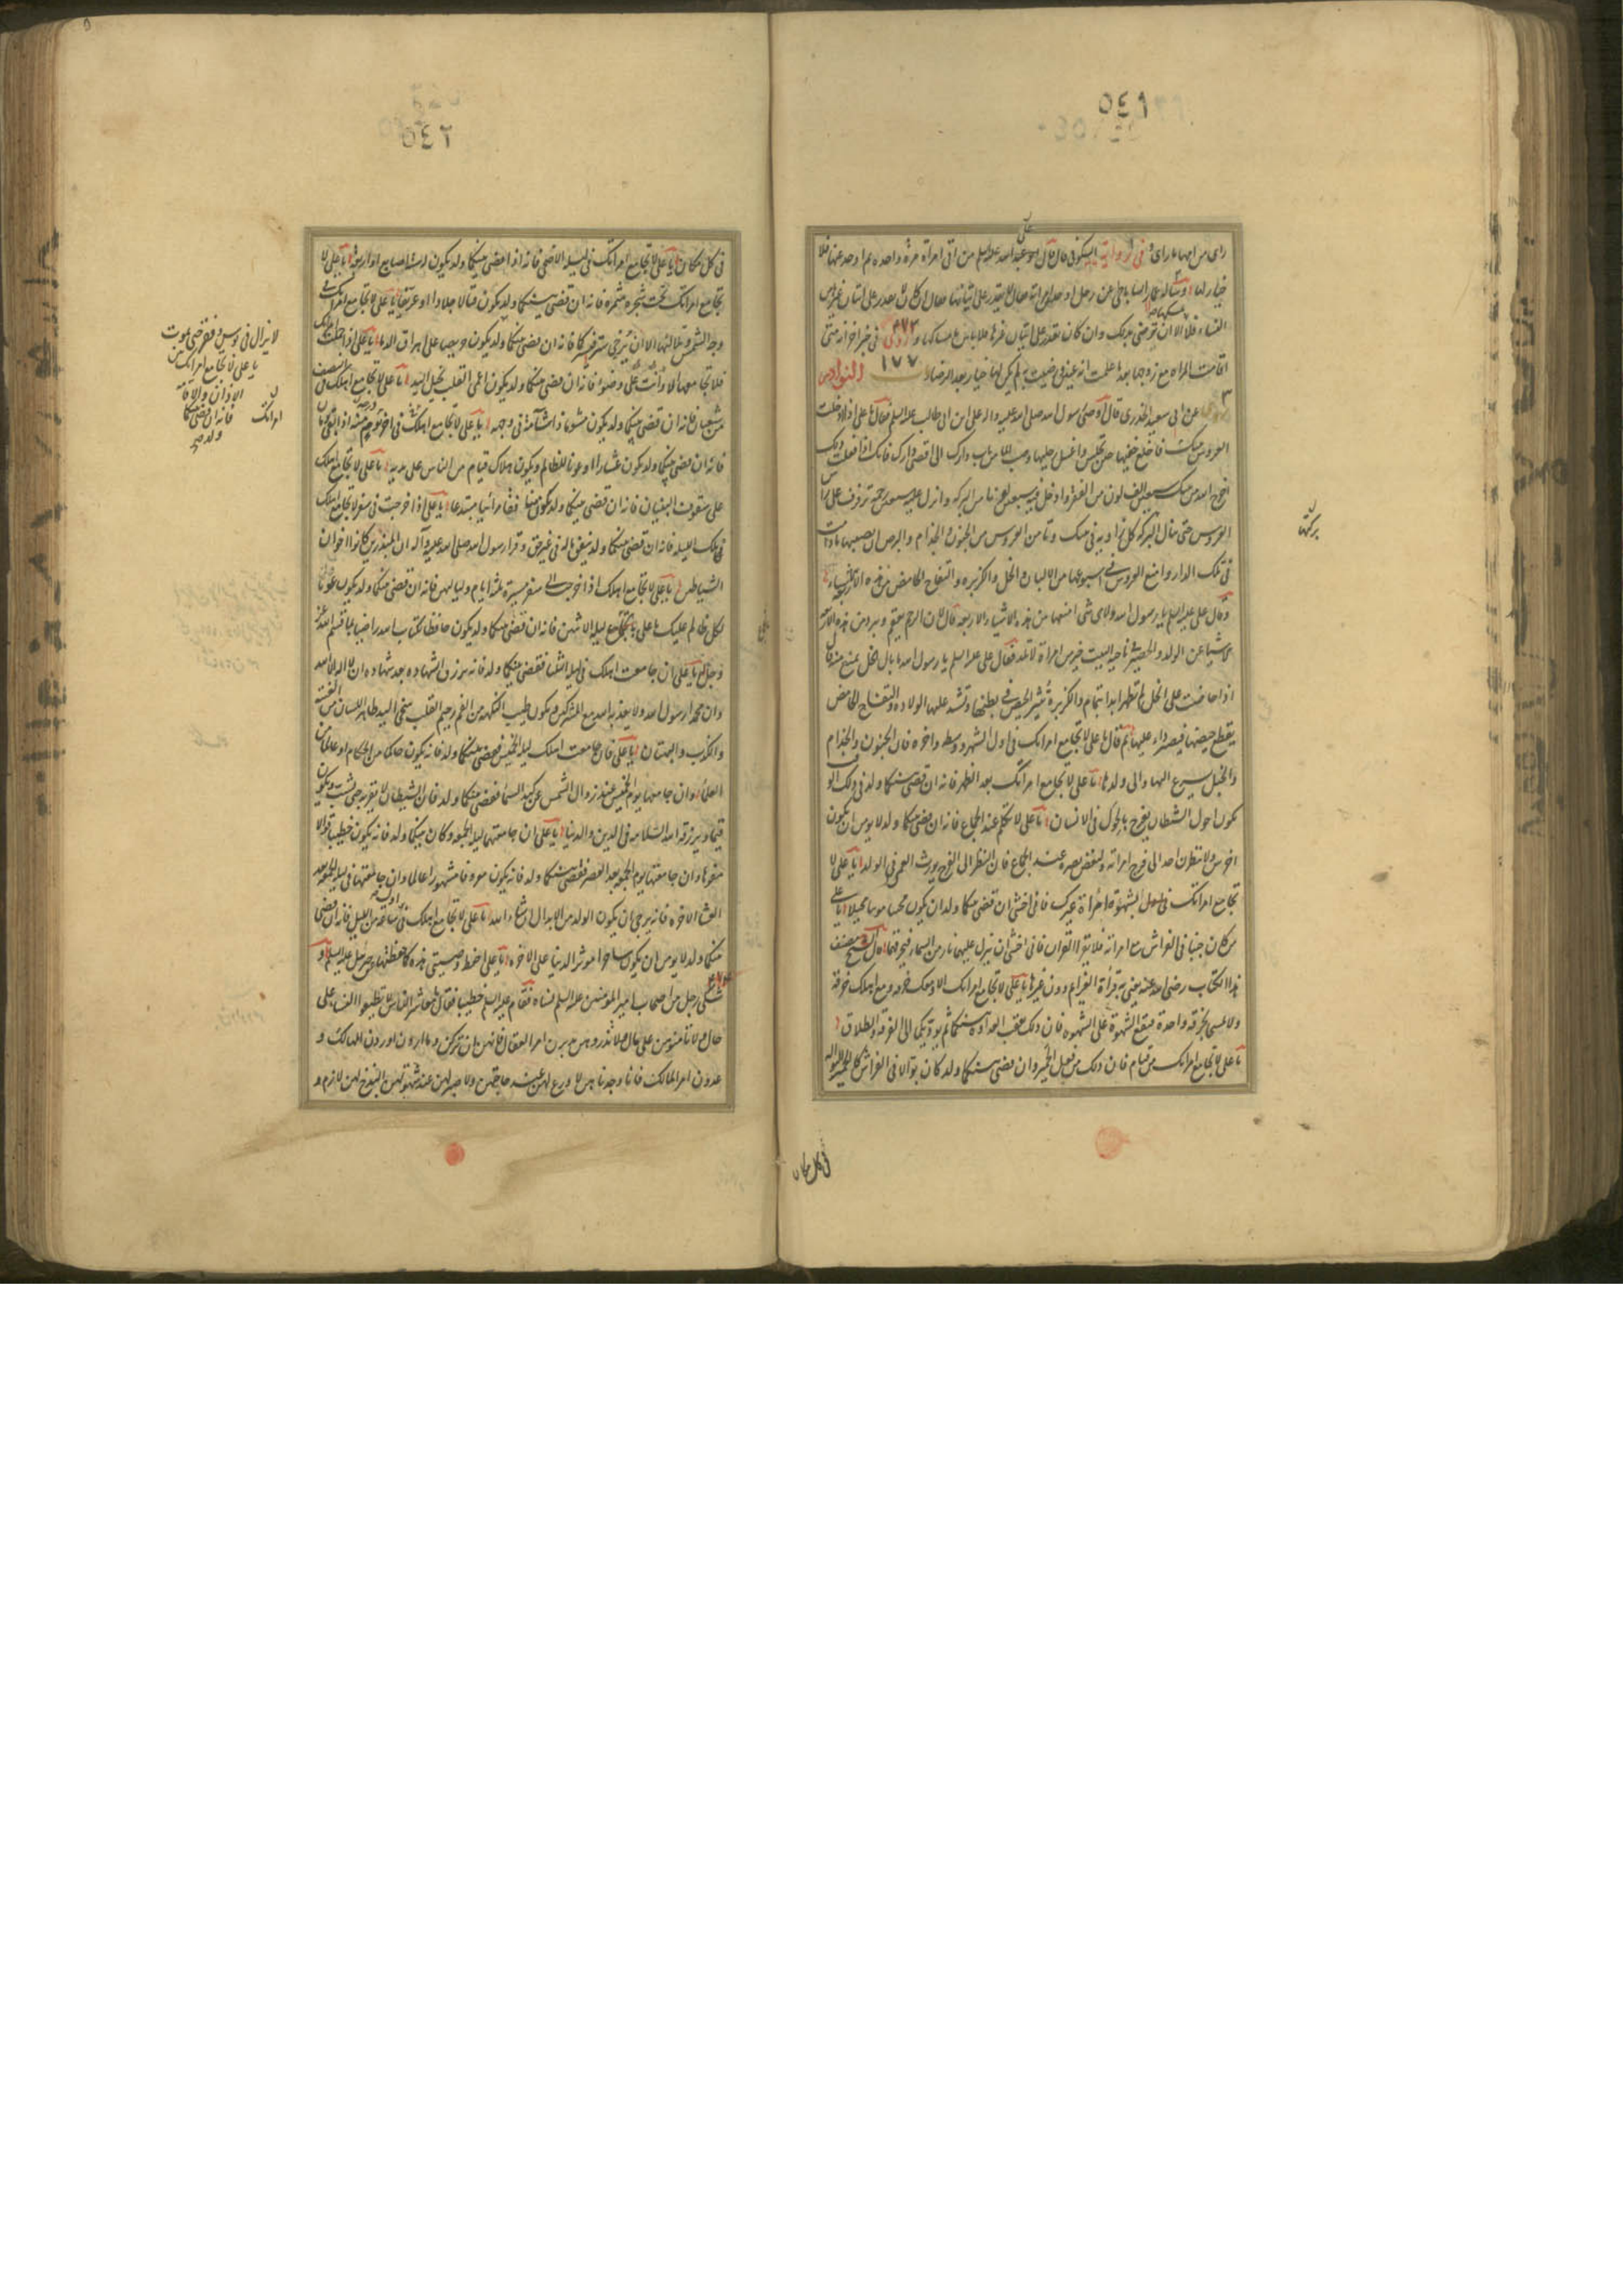 ٥٤١
رای من امها ما رای و فی روایة السکونی قال قال ابو عبد الله علیه السلم من اتی امراة مرة واحدة ثم اخذ عنها فلا
خیار لها
النساء فلا الا ان ترضی بذلک وان کان یقدر علی اتیان غیرها فلا باس بامساکها و روی فی خبر اخر انه متی
اقامت المراة مع زوجها بعد ما علمت انه عنین و رضیت به لم یکن لها خیار بعد الرضا ١٧٧ النوادر
عن ابی سعید الخدری قال اوصی رسول الله صلی الله علیه واله علی بن ابی طالب علیه السلم فقال یا علی اذا دخلت
العروس بیتک فاخلع خفیها حین تجلس واغسل رجلیها وصب الماء من باب دارک الی اقصی دارک فانک اذا فعلت ذلک
اخرج الله من بیتک سبعین الف لون من الفقر وادخل فیه سبعین الف لون من البرکة وانزل علیه سبعین رحمة ترفرف علی راس
العروس حتی تنال برکتها کل زاویة فی بیتک وتامن العروس من الجنون والجذام والبرص ان یصیبها ما دامت
فی تلک الدار وامنع العروس فی اسبوعها من الالبان والخل والکزبرة والتفاح الحامض من هذه الاربعة الاشیاء
فقال علی علیه السلم یا رسول الله ولای شی امنعها من هذه الاشیاء الاربعة قال لان الرحم یعقم ویبرد من هذه الاربعة
الاشیا عن الولد والحصیر فی ناحیة البیت خیر من امراة لا تلد فقال علی علیه السلم یا رسول الله ما بال الخل یمنع منه قال
اذا حاضت علی الخل لم تطهر ابدا بتمام والکزبرة تثیر الحیض فی بطنها وتشد علیها الولادة والتفاح الحامض
یقطع حیضها فیصیر داء علیها ثم قال یا علی لا تجامع امراتک فی اول الشهر ووسطه واخره فان الجنون والجذام
والخبل یسرع الیها والی ولدها یا علی لا تجامع امراتک بعد الظهر فانه ان قضی بینکما ولد فی ذلک الوقت
یکون احول والشیطان یفرح بالحول فی الانسان یا علی لا تتکلم عند الجماع فانه ان قضی بینکما ولد لا یومن ان یکون
اخرس ولا ینظرن احد الی فرج امراته ولیغض بصره عند الجماع فان النظر الی الفرج یورث العمی فی الولد یا علی لا
تجامع امراتک بشهوة امراة غیرک فانی اخشی ان قضی بینکما ولد ان یکون مخنثا مونثا مخبلا یا علی
من کان جنبا فی الفراش مع امراته فلا یقرا القران فانی اخشی ان تنزل علیهما نار من السماء فتحرقهما قال الشیخ مصنف
هذا الکتاب رضی الله عنه یعنی به قراءة العزایم دون غیرها یا علی لا تجامع امراتک الا ومعک خرقة ومع اهلک خرقة
ولا تمسحا بخرقة واحدة فیقع الشهوة علی الشهوة فان ذلک یعقب العداوة بینکما ثم یودیکما الی الفرقة والطلاق
یا علی لا تجامع امراتک من قیام فان ذلک من فعل الحمیر وان قضی بینکما ولد کان بوالا فی الفراش کالحمیر البوالة
برکتها
فی کل مکان
٥٤٢
فی کل مکان یا علی لا تجامع امراتک فی لیلة الاضحی فانه اذا قضی بینکما ولد یکون له ست اصابع او اربع یا علی لا
تجامع امراتک تحت شجرة مثمرة فانه ان قضی بینکما ولد یکون قتالا جلادا او عریفا یا علی لا تجامع امراتک فی
وجه الشمس وتلالئها الا ان یرخی ستر فیسترکما فانه ان قضی بینکما ولد لا یزال فی بوس وفقر حتی یموت
فلا تجامعها الا وانت علی وضوء فانه ان قضی بینکما ولد یکون اعمی القلب بخیل الید یا علی لا تجامع اهلک فی النصف
من شعبان فانه ان قضی بینکما ولد یکون مشوما ذا شامة فی وجهه یا علی لا تجامع اهلک فی اخر درجة منه اذا بقی یومان
فانه ان قضی بینکما ولد یکون عشارا او عونا للظالم ویکون هلاک فئام من الناس علی یدیه یا علی لا تجامع اهلک
علی سقوف البنیان فانه ان قضی بینکما ولد یکون منافقا مرائیا مبتدعا یا علی اذا خرجت فی سفر لا تجامع اهلک
فی تلک اللیلة فانه ان قضی بینکما ولد ینفق ماله فی غیر حق وقرا رسول الله صلی الله علیه واله ان المبذرین کانوا اخوان
الشیاطین یا علی لا تجامع اهلک اذا خرجت الی سفر مسیرة ثلثة ایام ولیالیهن فانه ان قضی بینکما ولد یکون عونا
لکل ظالم علیک یا علی بالجماع لیلة الاثنین فانه ان قضی بینکما ولد یکون حافظا لکتاب الله راضیا بما قسم الله عز
وجل له یا علی ان جامعت اهلک فی لیلة الثلثا فقضی بینکما ولد فانه یرزق الشهادة بعد شهادة ان لا اله الا الله
وان محمدا رسول الله ولا یعذبه الله مع المشرکین ویکون طیب النکهة من الفم رحیم القلب سخی الید طاهر اللسان من الغیبة
والکذب والبهتان یا علی فان جامعت اهلک لیلة الخمیس فقضی بینکما ولد فانه یکون حاکما من الحکام او عالما من
العلماء وان جامعتها یوم الخمیس عند زوال الشمس عن کبد السما فقضی بینکما ولد فان الشیطان لا یقربه حتی یشیب ویکون
قیما ویرزقه الله السلامة فی الدین والدنیا یا علی ان جامعتها لیلة الجمعة وکان بینکما ولد فانه یکون خطیبا قوالا
مفوها وان جامعتها یوم الجمعة بعد العصر فقضی بینکما ولد فانه یکون معروفا مشهورا عالما وان جامعتها فی لیلة الجمعة بعد
العشا الاخرة فانه یرجی ان یکون الولد من الابدال ان شاء الله یا علی لا تجامع اهلک فی اول ساعة من اللیل فانه ان قضی
بینکما ولد لا یومن ان یکون ساحرا موثرا للدنیا علی الاخرة یا علی احفظ وصیتی هذه کما حفظتها عن جبرئیل علیه السلم و
شکی رجل من اصحاب امیر المومنین علیه السلم نساءه فقام علیه السلم خطیبا فقال معاشر الناس لا تطیعوا النساء علی
حال ولا تامنوهن علی مال ولا تذروهن یدبرن امر العیال فانهن ان ترکن وما اردن اوردن المهالک و
عدون امر المالک فانا وجدناهن لا ورع لهن عند حاجتهن ولا صبر لهن عند شهوتهن البذخ لهن لازم و
لا یزال فی بوس وفقر حتی یموت
یا علی لا تجامع امراتک بین
الاذان والاقامة
فانه ان قضی بینکما
ولد